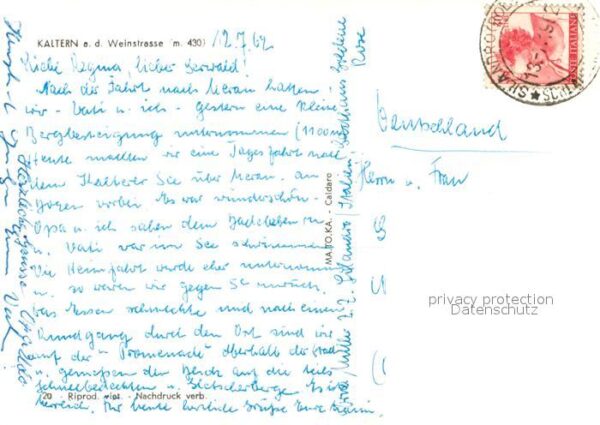 KALTERN a. d. Weinstrasse (m. 430) 12.7.62
Liebe Regina, lieber Gerwald!
Nach der Fahrt nach Meran hatten
wir - Vati u. ich - gestern eine kleine
Bergbesteigung unternommen (1100m)
Heute machten wir eine Tagesfahrt nach
dem Kalterer See über Meran, an
Bozen vorbei. Es war wunderschön.
Opa u. ich sahen dem Badeleben zu
u. Vati war im See schwimmen.
Die Heimfahrt wurde eher unternommen
u. so waren wir gegen
Das Essen schmeckte und nach einem
Rundgang durch den Ort sind wir
auf der "Promenade" oberhalb der Stadt
u. genießen den Blick auf die teils
schneebedeckten u. Gletscherberge. Es ist
herrlich. Für heute herzliche Grüße Eure
20 - Riprod. viet. - Nachdruck verb.
Herzliche Grüsse
Vati
MA.TO.KA. - Caldaro
Müller z. Z. Silandro / Italien
Rose
SILANDRO
POSTE ITALIANE
Deutschland
Herrn u. Frau
privacy protection
Datenschutz